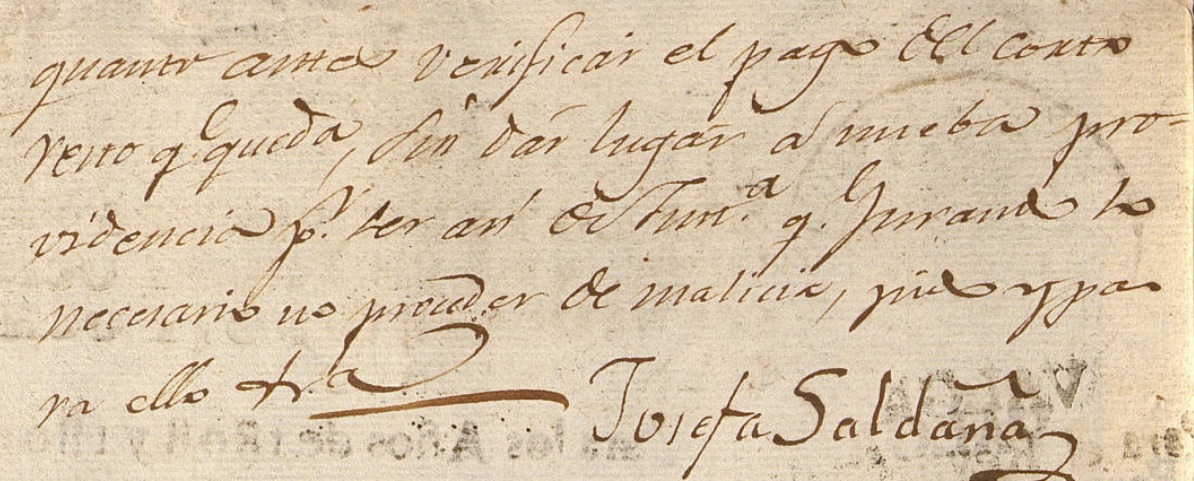 quanto antes verificar el pago del corto
resto q.e queda, sin dár lugár á nueba pro-
videncia p.r ser asi de Just.a q.e Jurando lo
necesario no proceder de malicia, pide y pa
ra ello &ra
Josefa Saldaña